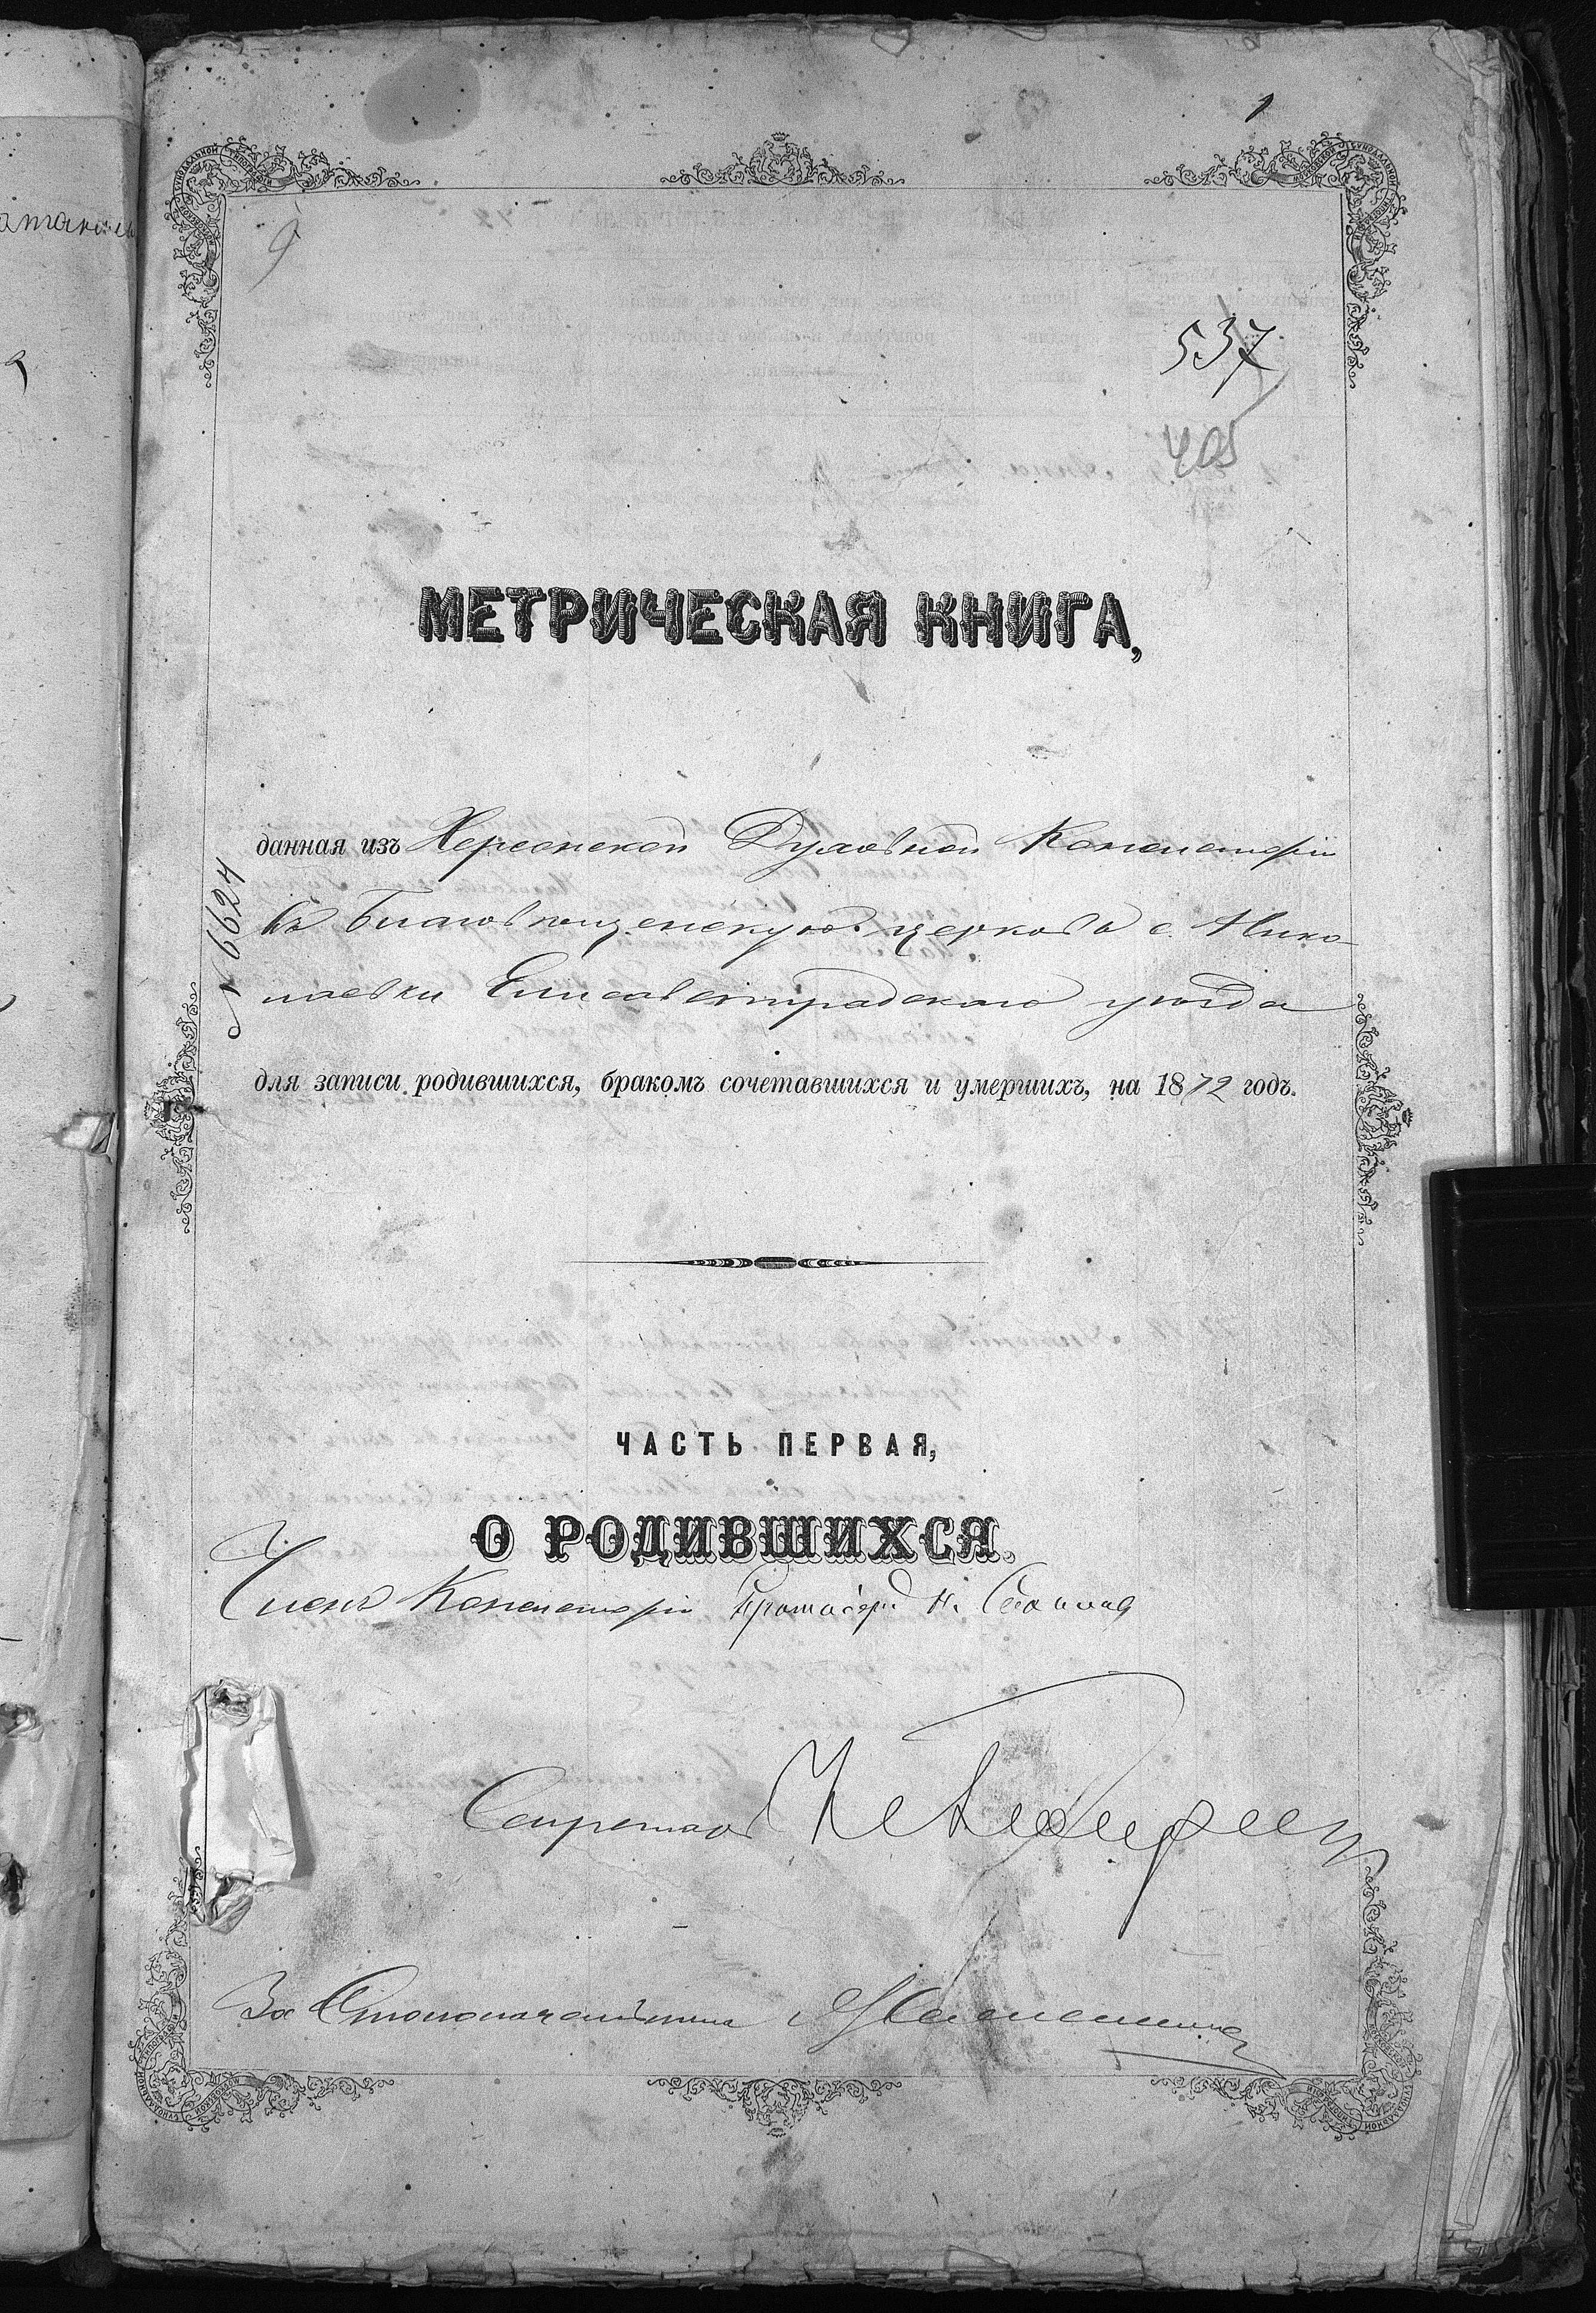 1
9
537
405
МЕТРИЧЕСКАЯ КНИГА,
данная изъ Херсонской Духовной Консисторіи
въ Благовѣщенскую церковь с. Нико-
лаевки Елисаветградскаго уѣзда
№ 6624
для записи родившихся, бракомъ сочетавшихся и умершихъ, на 1872 годъ.
ЧАСТЬ ПЕРВАЯ,
О РОДИВШИХСЯ.
Членъ Консисторіи Протоіерей Н.
Секретарь
За Столоначальника